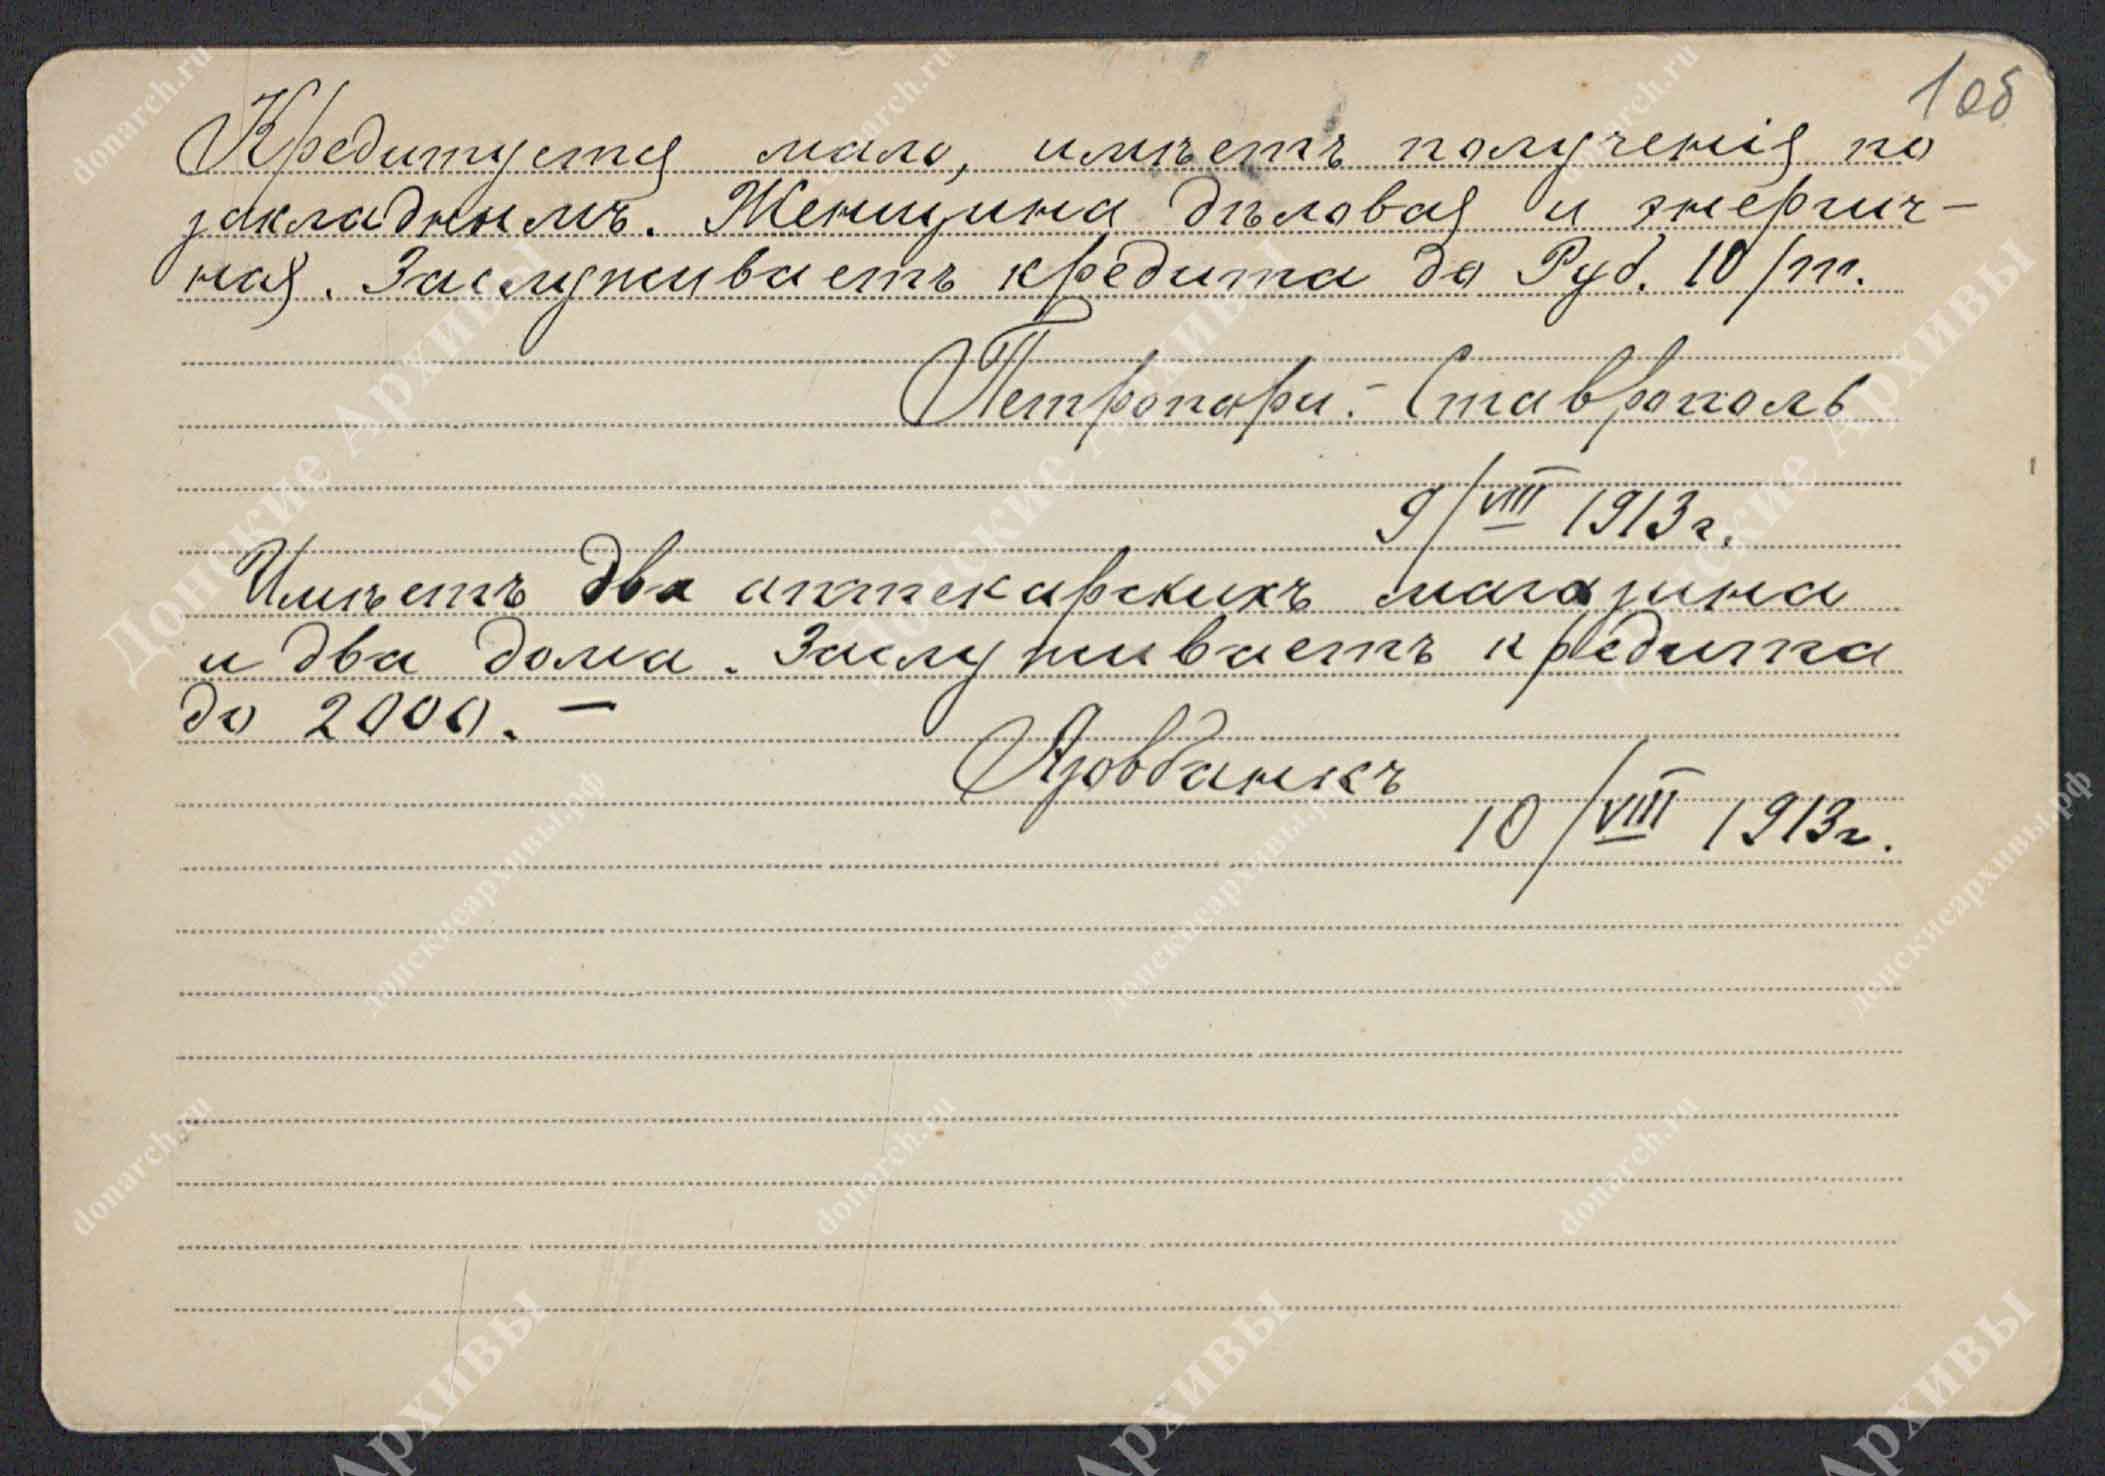 1об
Кредитуется мало, имѣетъ полученія по
закладнымъ. Женщина дѣловая и энергич-
ная. Заслуживаетъ кредита до Руб. 10/т.
Петропари.- Ставрополь
9/VIII 1913г.
Имѣетъ два аптекарскихъ магазина
и два дома. Заслуживаетъ кредита
до 2000. —
Азовбанкъ
10/VIII 1913г.
Донские Архивы
donarch.ru
донскиеархивы.рф